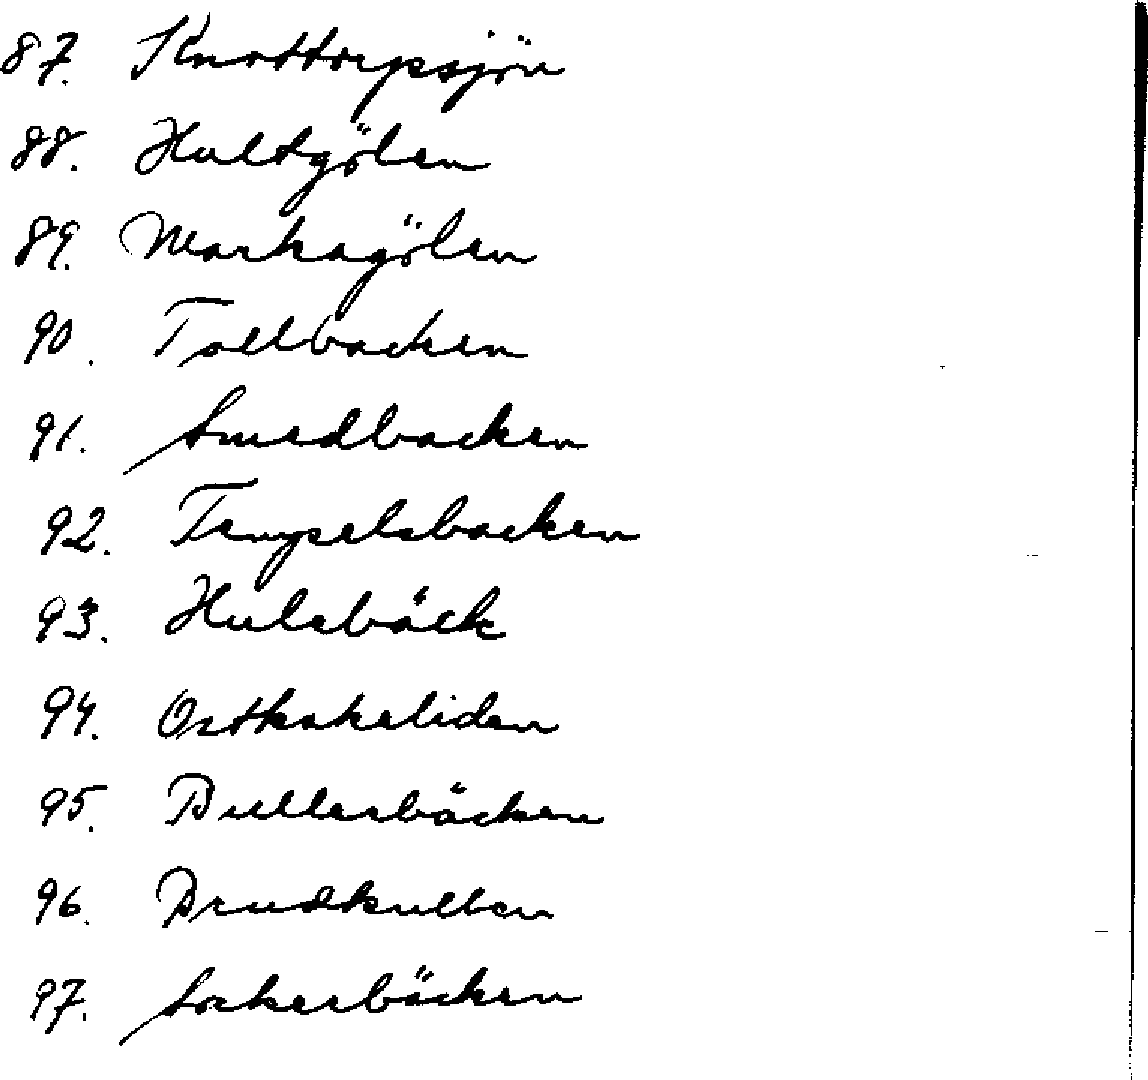 87. Knottorpsjön
88. Hultgölen
89. Markagölen
90. Tollbacken
91. Smedbacken
92. Tempelsbacken
93. Hulsbäck
94. Ostkakeliden
95. Bullerbäcken
96. Brudkullen
97. Sockerbäcken